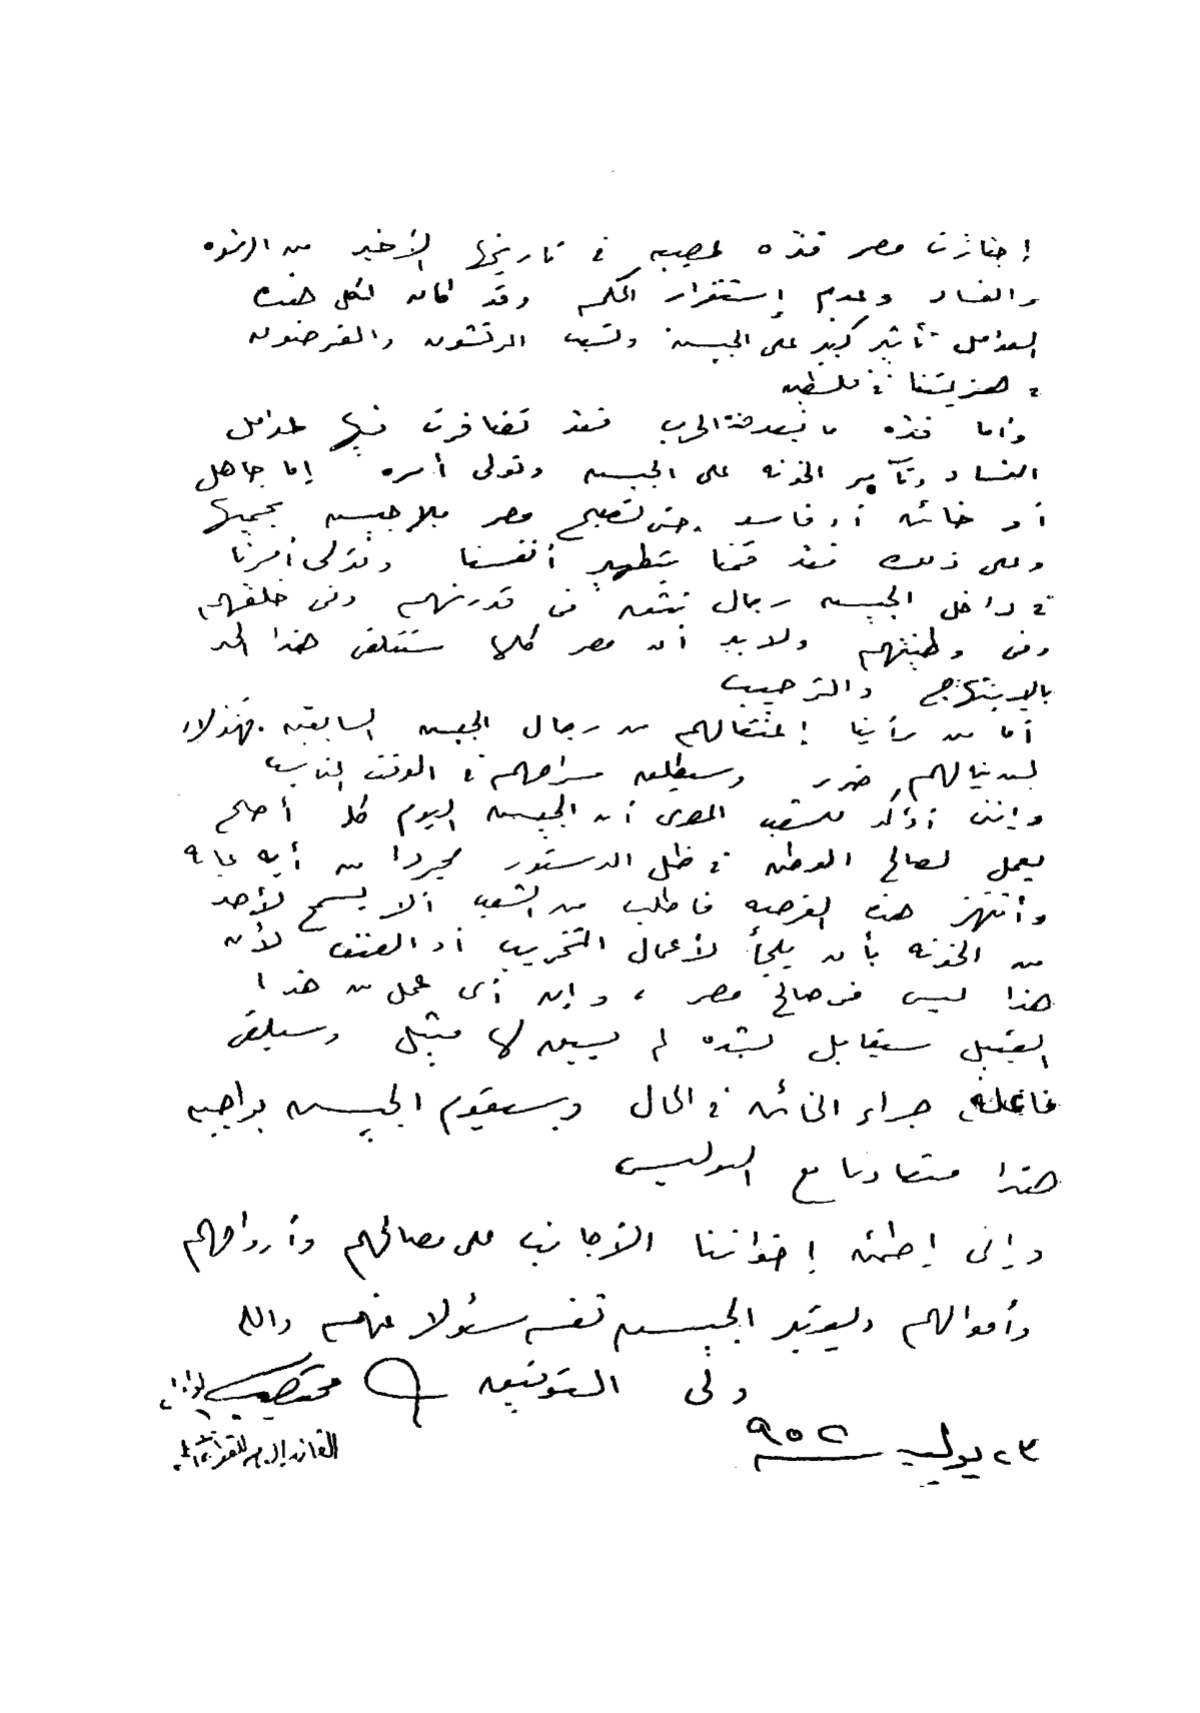 إجتازت مصر فترة عصيبه فى تاريخها الأخير من الرشوه
والفساد وعدم إستقرار الحكم وقد كان لكل هذه
العوامل تأثير كبير على الجيش وتسبب المرتشون والمغرضون
فى هزيمتنا فى فلسطين
وأما فترة ما بعد هذه الحرب فقد تضافرت فيها عوامل
الفساد وتآمر الخونه على الجيش وتولى أمره إما جاهل
أو خائن أو فاسد حتى تصبح مصر بلا جيش يحميها
وعلى ذلك فقد قمنا بتطهير أنفسنا وتولى أمرنا
فى داخل الجيش رجال نثق فى قدرتهم وفى خلقهم
وفى وطنيتهم ولا بد أن مصر كلها ستتلقى هذا الخبر
بالابتهاج والترحيب
أما من رأينا إعتقالهم من رجال الجيش السابقين فهؤلاء
لن ينالهم ضرر وسيطلق سراحهم فى الوقت المناسب
وإننى أؤكد للشعب المصرى أن الجيش اليوم كله أصبح
يعمل لصالح الوطن فى ظل الدستور مجردا من أيه غايه
وأنتهز هذه الفرصه فأطلب من الشعب ألا يسمح لأحد
من الخونه بأن يلجأ لأعمال التخريب أو العنف لأن
هذا ليس فى صالح مصر ، وإن أى عمل من هذا
القبيل سيقابل بشده لم يسبق لها مثيل وسيلقى
فاعله جزاء الخائن فى الحال وسيقوم الجيش بواجبه
هذا متعاونا مع البوليس
وإنى إطمئن إخواننا الأجانب على مصالحهم وأرواحهم
وأموالهم ويعتبر الجيش نفسه مسئولا عنهم والله
ولى التوفيق محمد نجيب لواء أ.ح
القائد العام للقوات المسلحة
٢٣ يوليه سنه ٩٥٢